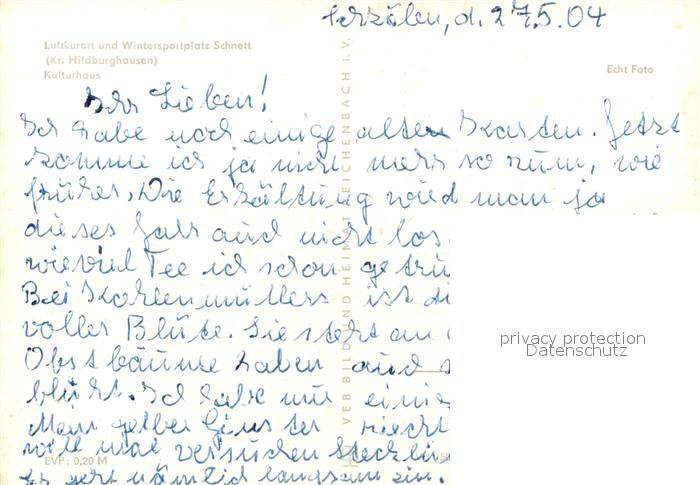 d. 27.5.04
Luftkurort und Wintersportplatz Schnett
(Kr. Hildburghausen)
Kulturhaus
Echt Foto
Ihr Lieben!
Ich habe noch einige alten Karten. Jetzt
komme ich ja nicht mehr so rum, wie
früher. Die Erkältung wird man ja
dieses Jahr auch nicht los
wieviel Tee ich schon getru
Bei Kohlenmüllers ist di
voller Blüte. Sie steht an
Obstbäume haben auch s
blüht. Ich habe mir einig
Mein gelber Ginster riecht
will mal versuchen Steckli
Es geht nämlich langsam ein.
VEB BILD UND HEIMAT REICHENBACH i. V.
EVP: 0,20 M
privacy protection
Datenschutz